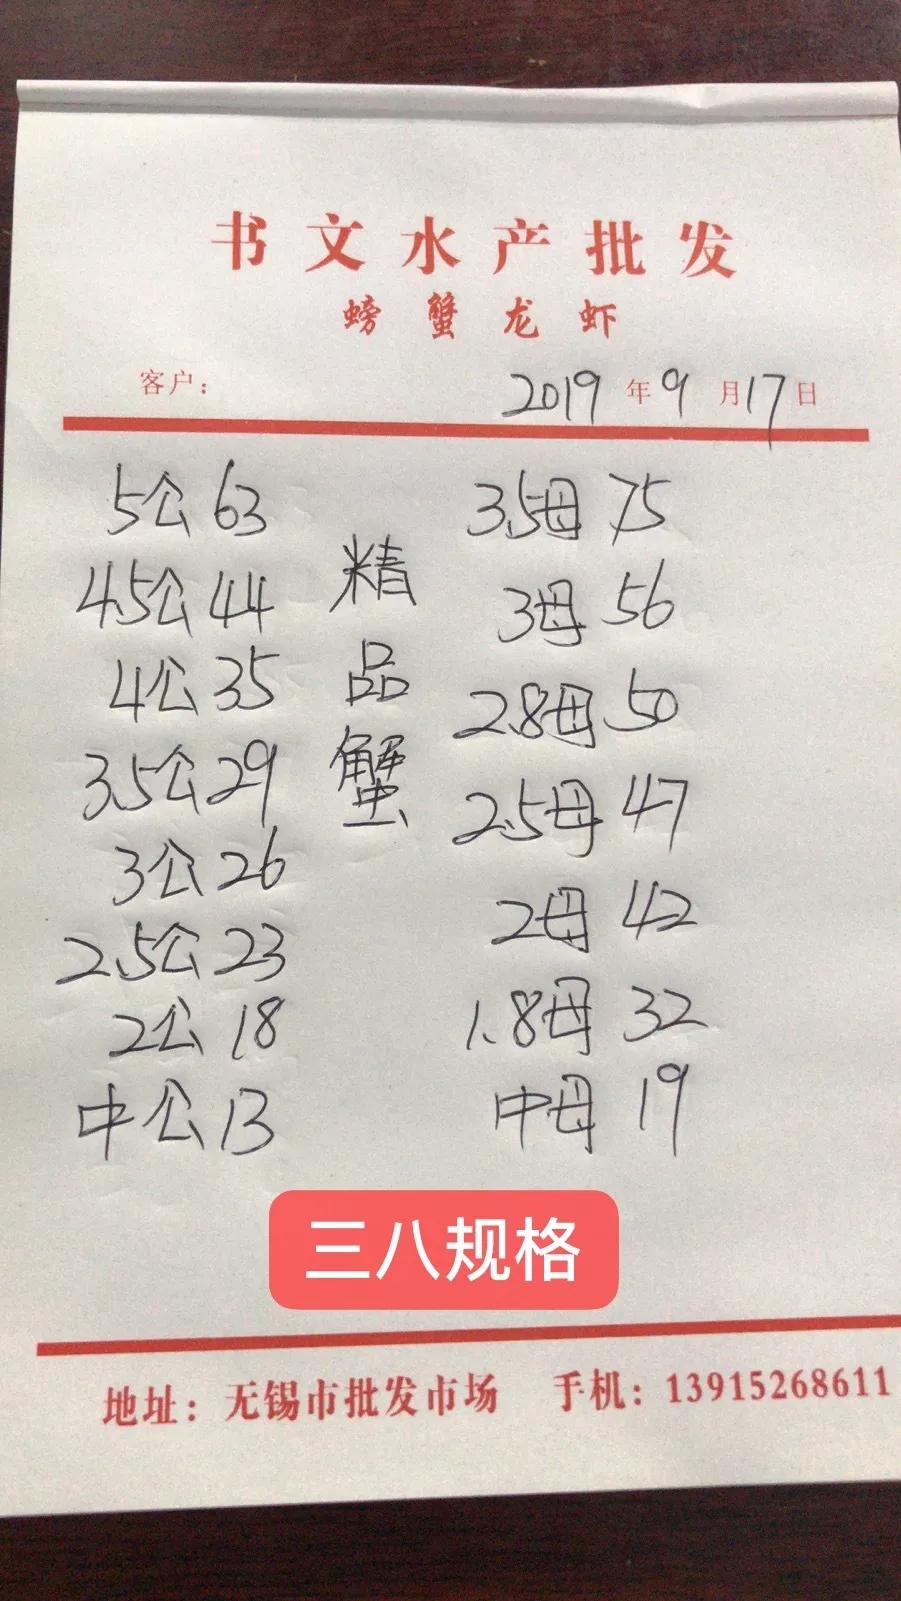 书文水产批发
螃蟹龙虾
客户： 2019年9月17日
5公 63
4.5公 44
4公 35
3.5公 29
3公 26
2.5公 23
2公 18
中公 13
精
品
蟹
3.5母 75
3母 56
2.8母 50
2.5母 47
2母 42
1.8母 32
中母 19
三八规格
地址：无锡市批发市场 手机：13915268611